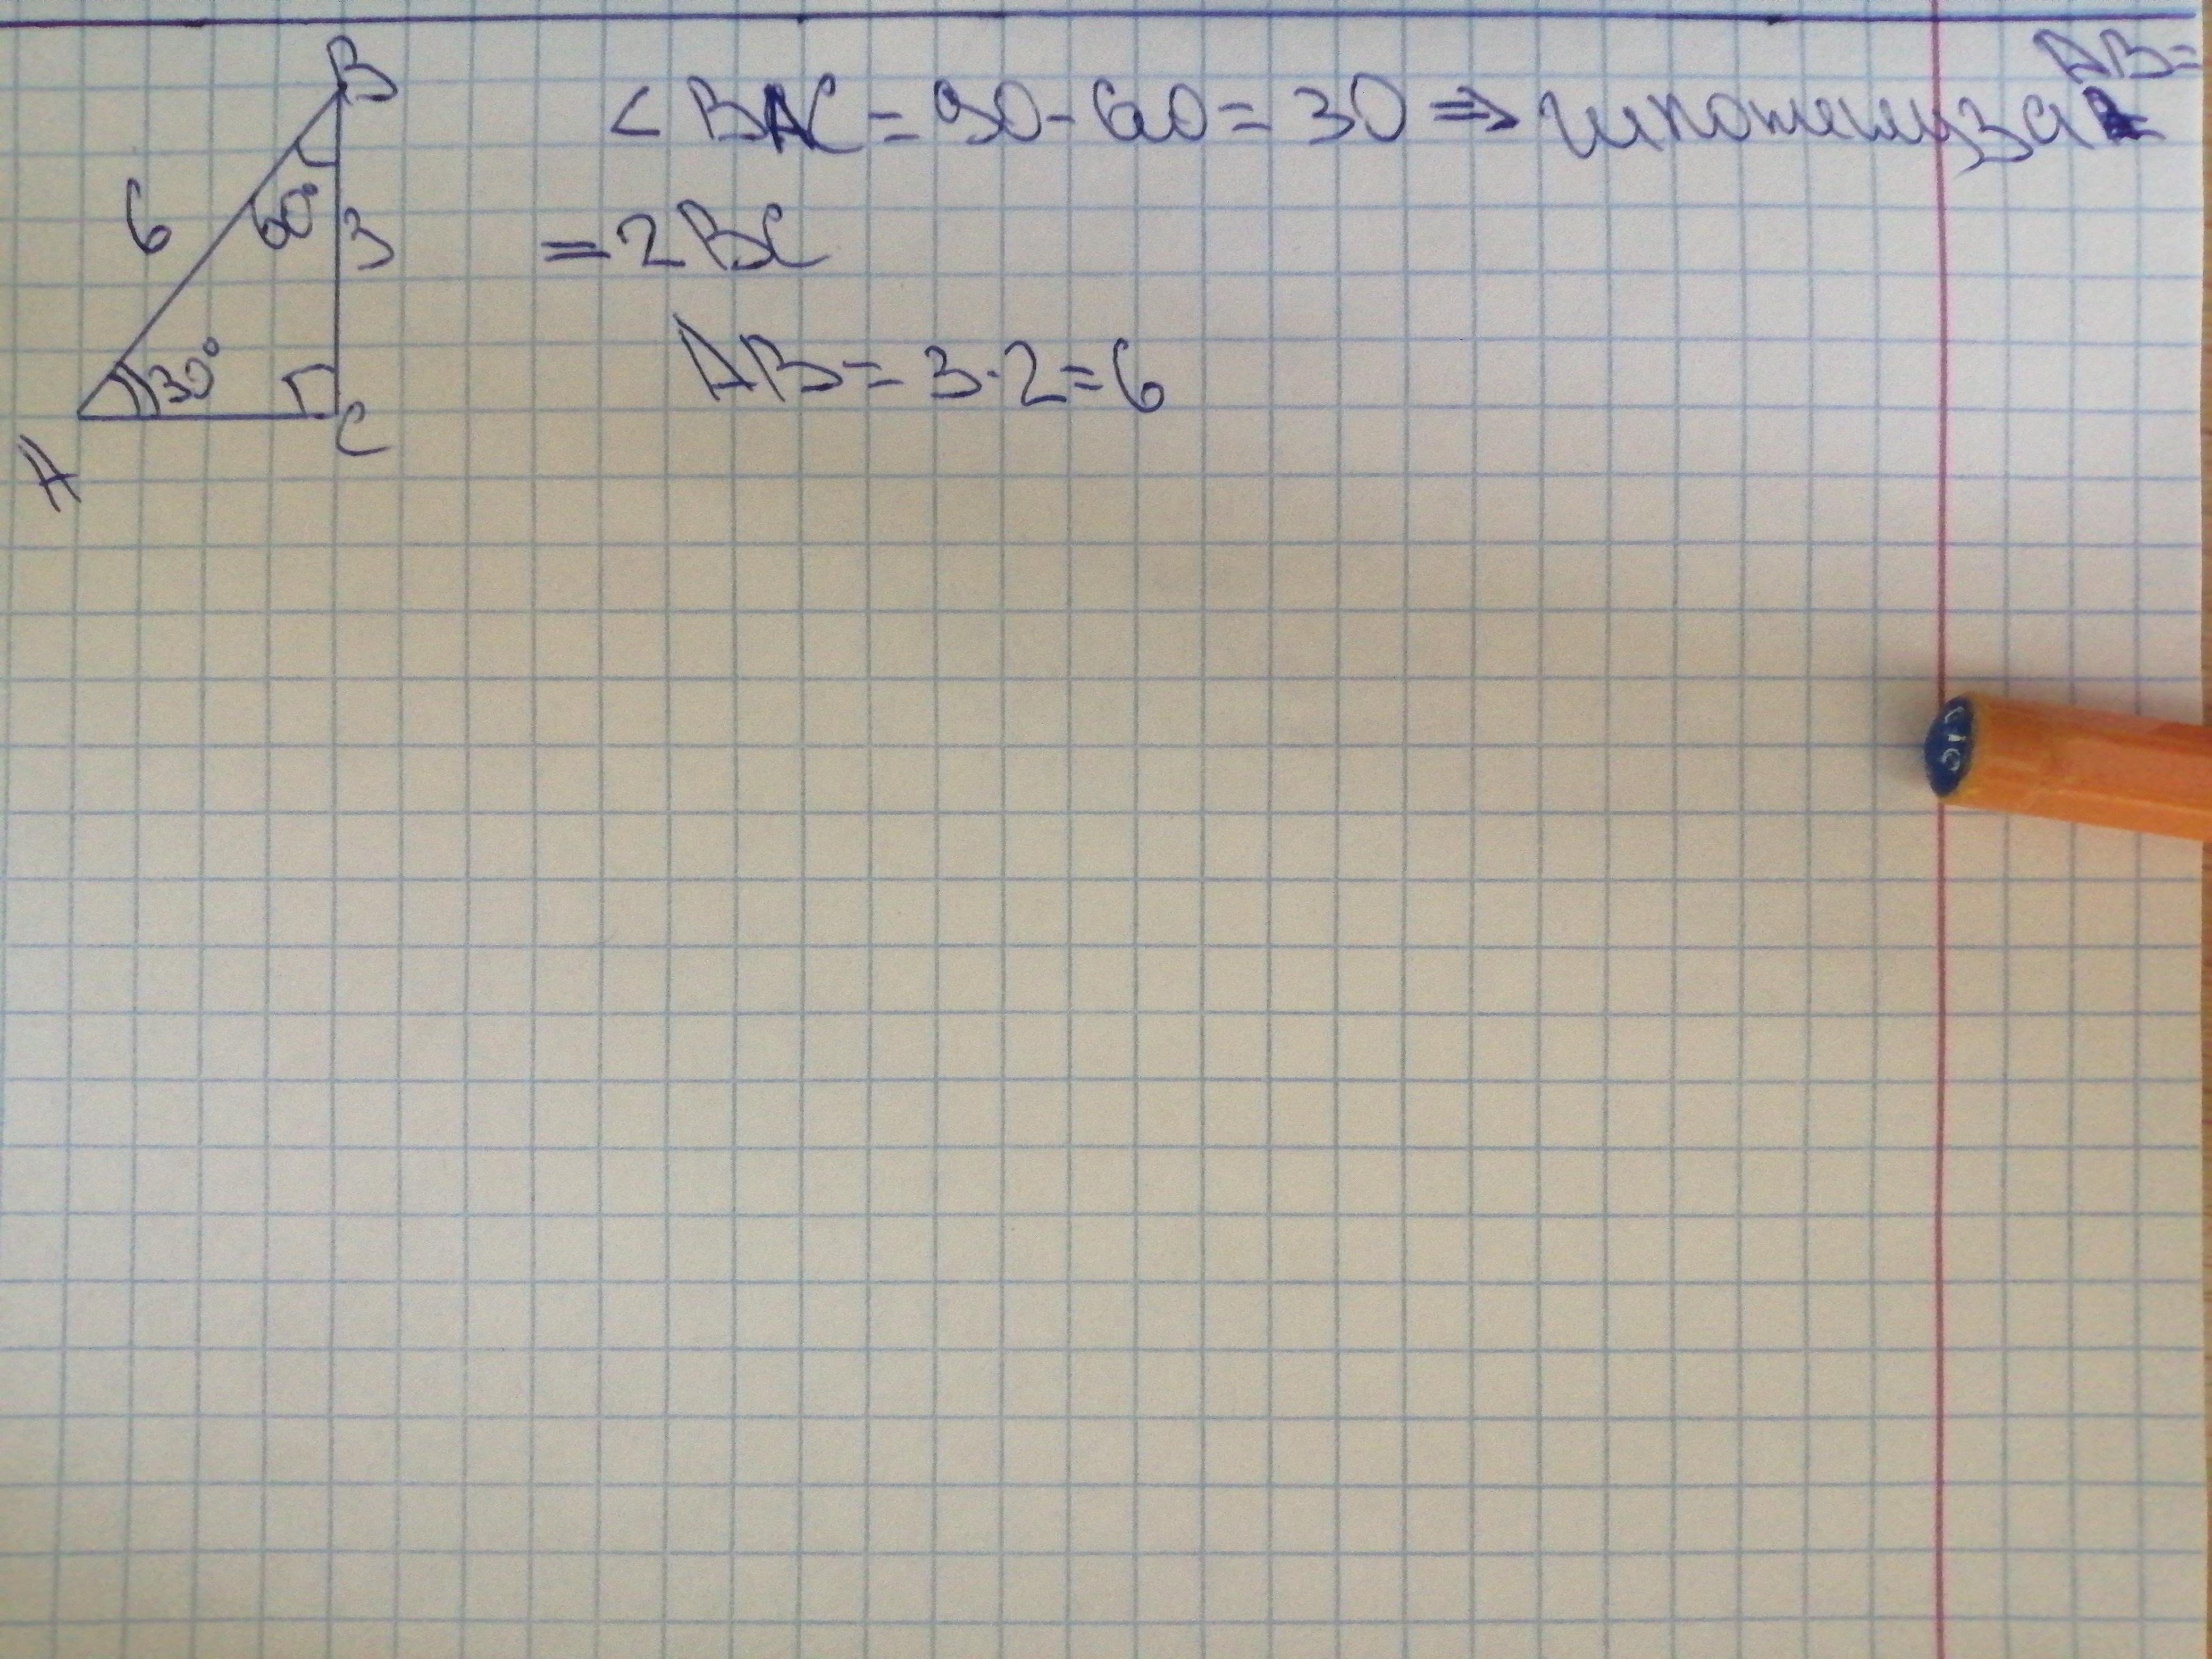 B
6
60°
3
30°
A
C
< BAC = 90 - 60 = 30 => гипотенуза AB =
= 2 BC
AB = 3 · 2 = 6